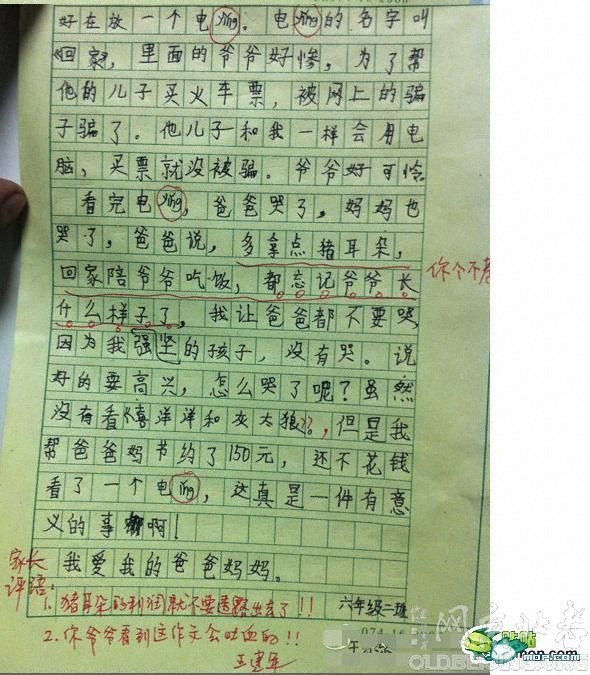 好在放一个电ying。电ying的名字叫
《回家》,里面的爷爷好惨,为了帮
他的儿子买火车票,被网上的骗
子骗了。他儿子和我一样会用电
脑,买票就没被骗。爷爷好可怜
看完电ying,爸爸哭了,妈妈也
哭了,爸爸说,多拿点猪耳朵,
回家陪爷爷吃饭,都忘记爷爷长
你个不孝
什么样子了,我让爸爸都不要哭
因为我强坚的孩子,没有哭。说
好的要高兴,怎么哭了呢?虽然
没有看《喜洋洋和灰太狼》,但是我
帮爸爸妈节约了150元,还不花钱
看了一个电ying,这真是一件有意
义的事啊!
我爱我的爸爸妈妈。
家长
评语:
1、猪耳朵的利润就不要透露出去了!!
六年级二班
2.你爷爷看到这作文会吐血的!!